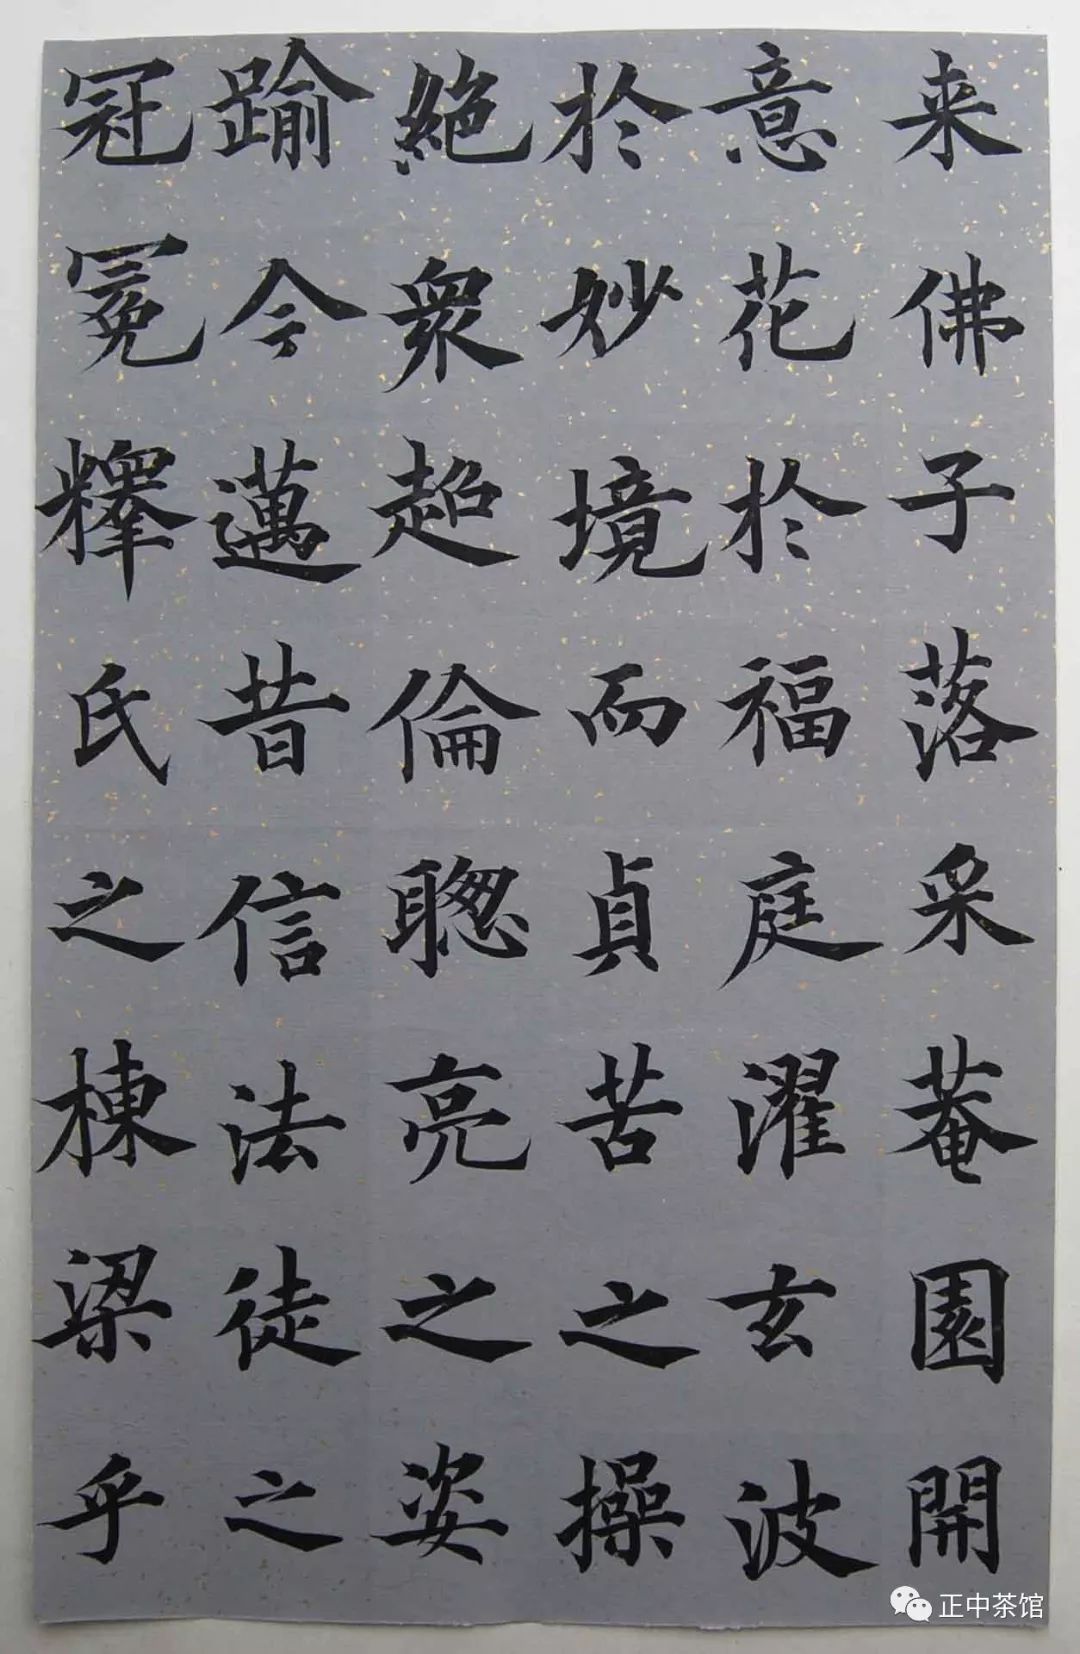 来佛子落采菴園開
意花於福庭濯玄波
於妙境而貞苦之操
絶衆超倫聰亮之姿
踰今邁昔信法徒之
冠冕釋氏之棟梁乎
正中茶馆